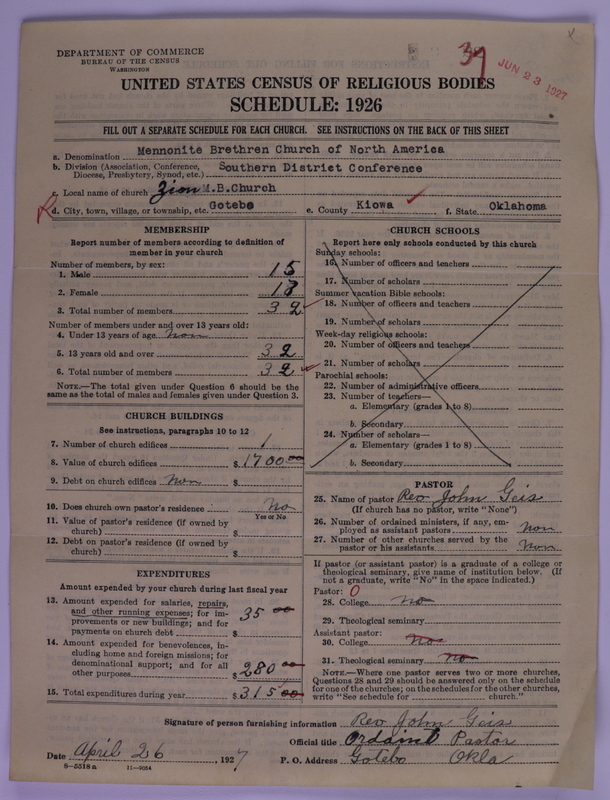 DEPARTMENT OF COMMERCE
BUREAU OF THE CENSUS
WASHINGTON
37
JUN 23 1927
UNITED STATES CENSUS OF RELIGIOUS BODIES
SCHEDULE: 1926
FILL OUT A SEPARATE SCHEDULE FOR EACH CHURCH. SEE INSTRUCTIONS ON THE BACK OF THIS SHEET
a. Denomination Mennonite Brethren Church of North America
b. Division (Association, Conference, Diocese, Presbytery, Synod, etc.) Southern District Conference
c. Local name of church Zion M.B.Church
d. City, town, village, or township, etc. Gotebo e. County Kiowa f. State Oklahoma
MEMBERSHIP
Report number of members according to definition of
member in your church
Number of members, by sex:
1. Male 15
2. Female 17
3. Total number of members 32
Number of members under and over 13 years old:
4. Under 13 years of age non
5. 13 years old and over 32
6. Total number of members 32
NOTE.—The total given under Question 6 should be
same as the total of males and females given under Question 3.
CHURCH BUILDINGS
See instructions, paragraphs 10 to 12
7. Number of church edifices 1
8. Value of church edifices $1700.00
9. Debt on church edifices non $
10. Does church own pastor's residence No
Yes or No
11. Value of pastor's residence (if owned by
church) $
12. Debt on pastor's residence (if owned by
church) $
EXPENDITURES
Amount expended by your church during last fiscal year
13. Amount expended for salaries, repairs,
and other running expenses; for im-
provements or new buildings; and for
payments on church debt $ 35 00
14. Amount expended for benevolences, in-
cluding home and foreign missions; for
denominational support; and for all
other purposes $280 00
15. Total expenditures during year $315 00
CHURCH SCHOOLS
Report here only schools conducted by this church
Sunday schools:
16. Number of officers and teachers
17. Number of scholars
Summer vacation Bible schools:
18. Number of officers and teachers
19. Number of scholars
Week-day religious schools:
20. Number of officers and teachers
21. Number of scholars
Parochial schools:
22. Number of administrative officers
23. Number of teachers—
a. Elementary (grades 1 to 8)
b. Secondary
24. Number of scholars—
a. Elementary (grades 1 to 8)
b. Secondary
PASTOR
25. Name of pastor Rev John Geis
(If church has no pastor, write "None")
26. Number of ordained ministers, if any, em-
ployed as assistant pastors Non
27. Number of other churches served by the
pastor or his assistants Non
If pastor (or assistant pastor) is a graduate of a college or
theological seminary, give name of institution below. (If
not a graduate, write "No" in the space indicated.)
Pastor: 0
28. College no
29. Theological seminary
Assistant pastor:
30. College No
31. Theological seminary no
NOTE.—Where one pastor serves two or more churches,
Questions 28 and 29 should be answered only on the schedule
for one of the churches; on the schedules for the other churches,
write "See schedule for church."
Signature of person furnishing information Rev John Geis
Official title Ordaint Pastor
Date April 26, 1927 P. O. Address Gotebo Okla
8-5518a 11-9054